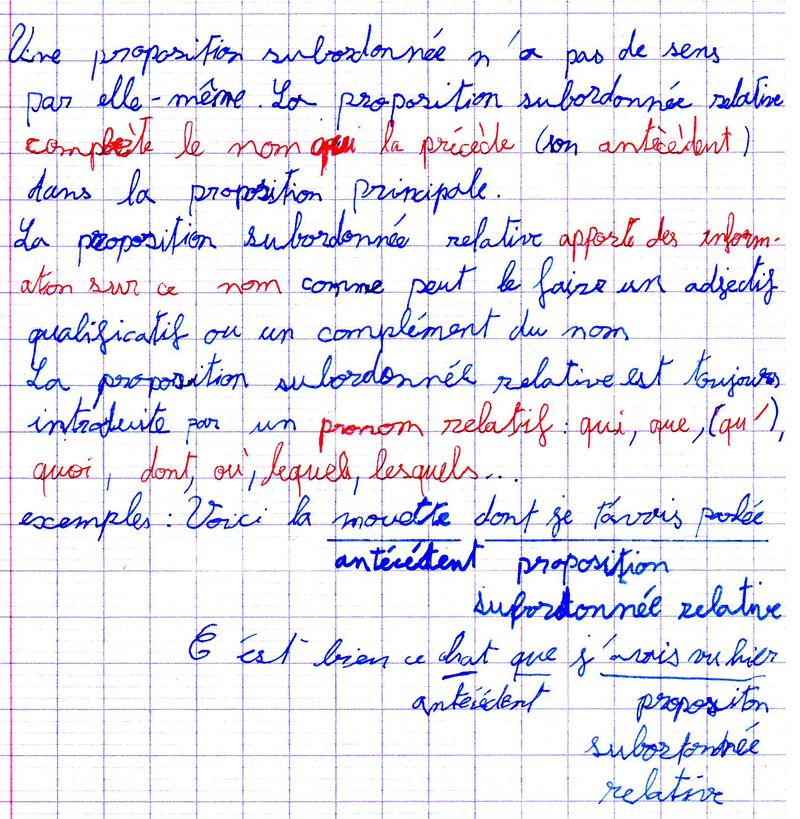 Une proposition subordonnée n'a pas de sens
par elle-même. La proposition subordonnée relative
complète le nom qui la précède (son antècèdent)
dans la proposition principale.
La proposition subordonnée relative apporte des inform-
ation sur ce nom comme peut le faire un adjectif
qualificatif ou un complément du nom
La proposition subordonnée relative est toujours
introduite par un pronom relatif : qui, que, (qu'),
quoi, dont, où, lequels, lesquels...
exemples : Voici la mouette dont je t'avais parlée
antécédent proposition
subordonnée relative
C'est bien ce chat que j'avais vu hier
antécédent propositon
subordonnée
relative